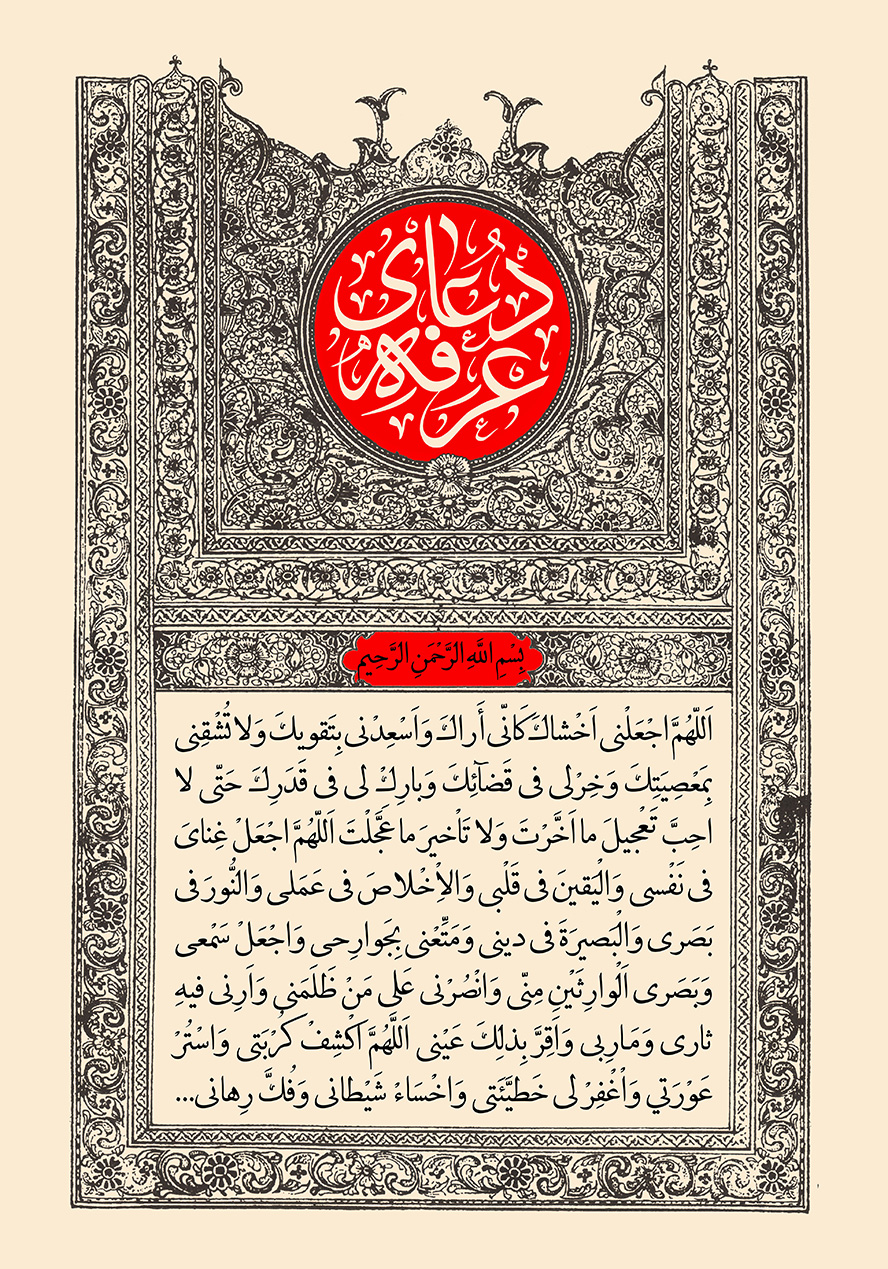 دُعای
عرفه
بِسْمِ اللَّهِ الرَّحْمَنِ الرَّحِيمِ
اَللّهُمَّ اجْعَلْنى اَخْشاكَ كَانّى أَراكَ وَاَسْعِدْنى بِتَقويكَ وَلا تُشْقِنى
بِمَعْصِيَتِكَ وَخِرْلى فى قَضآئِكَ وَبارِكْ لى فى قَدَرِكَ حَتّى لا
احِبَّ تَعْجيلَ ما اَخَّرْتَ وَلا تَاْخيرَ ما عَجَّلْتَ اَللّهُمَّ اجْعَلْ غِناىَ
فى نَفْسى وَالْيَقينَ فى قَلْبى وَالاِْخْلاصَ فى عَمَلى وَالنُّورَ فى
بَصَرى وَالْبَصيرَةَ فى دينى وَمَتِّعْنى بِجَوارِحى وَاجْعَلْ سَمْعى
وَبَصَرى اَلْوارِثَيْنِ مِنّى وَانْصُرْنى عَلى مَنْ ظَلَمَنى وَاَرِنى فيهِ
ثارى وَمَارِبى وَاَقِرَّ بِذلِكَ عَيْنى اَللَّهُمَّ اكْشِفْ كُرْبَتى وَاسْتُرْ
عَوْرَتي وَاْغْفِرْ لى خَطيَّئَتى وَاخْسَاءْ شَيْطانى وَفُكَّ رِهانى...